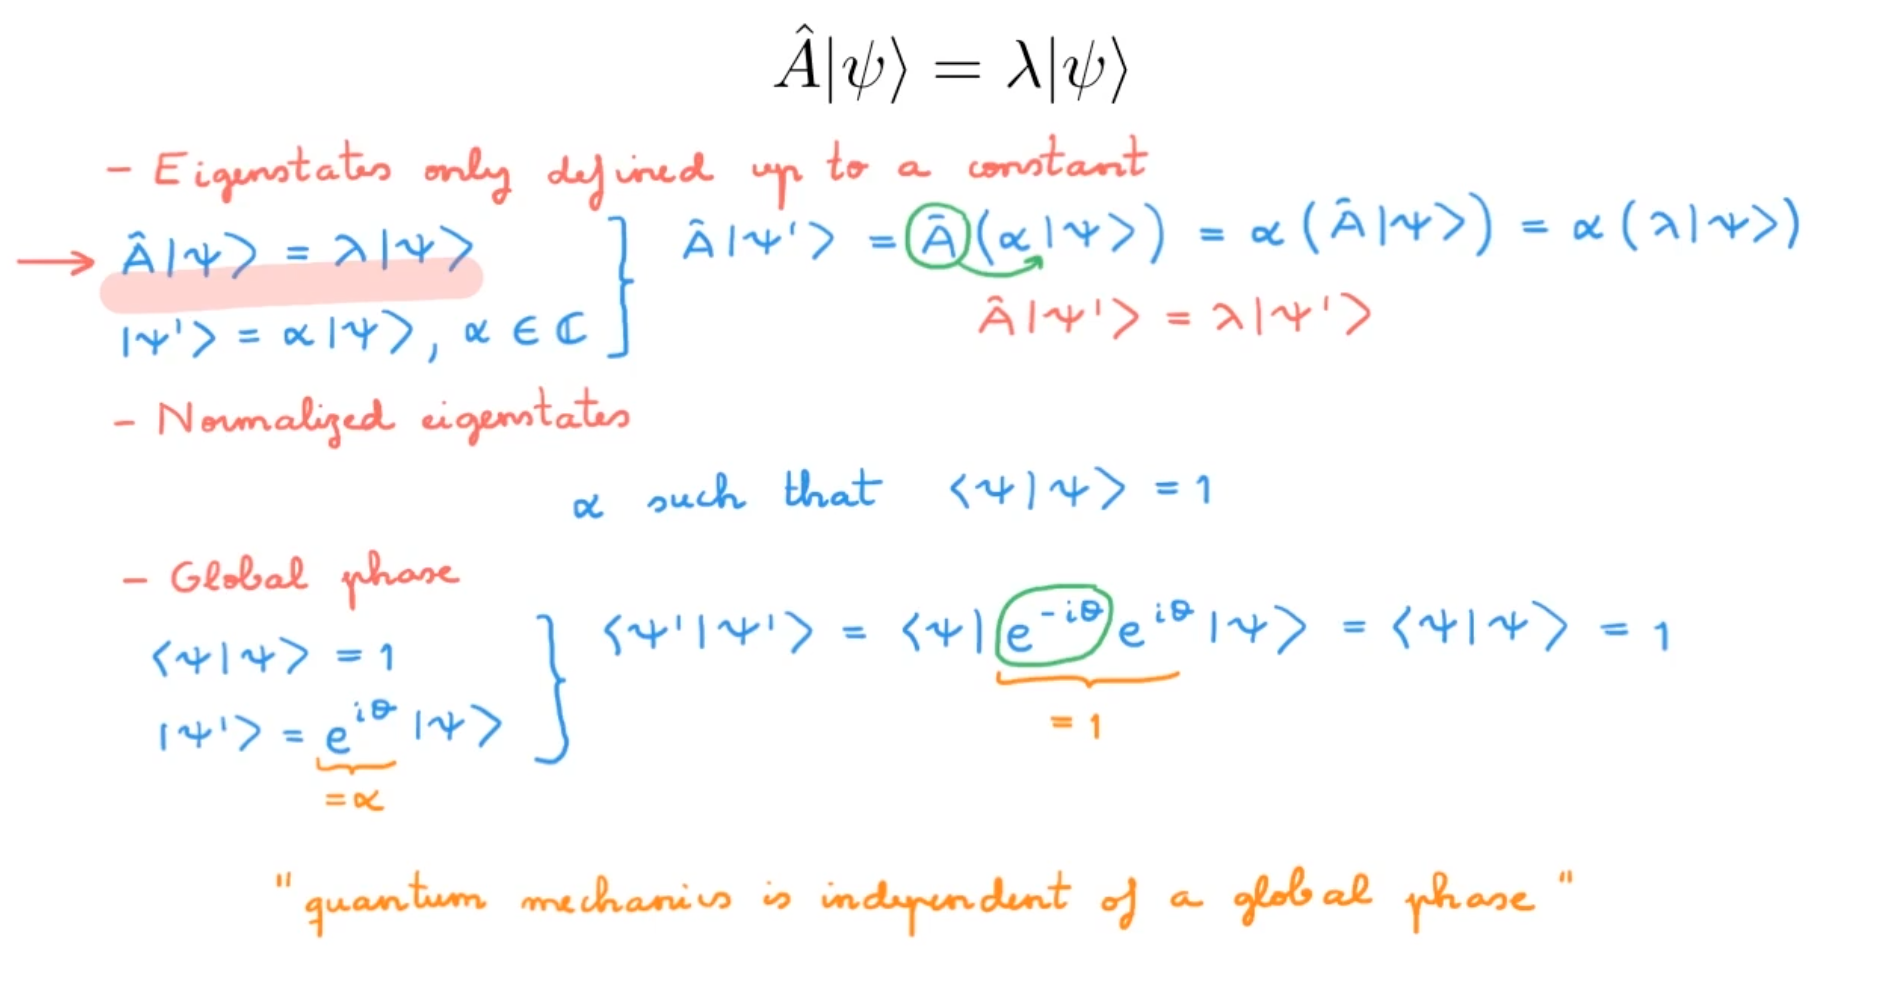 Â|ψ⟩ = λ|ψ⟩
- Eigenstates only defined up to a constant
→ Â|ψ⟩ = λ|ψ⟩
|ψ'⟩ = α|ψ⟩, α ∈ ℂ
Â|ψ'⟩ = Â(α|ψ⟩) = α(Â|ψ⟩) = α(λ|ψ⟩)
Â|ψ'⟩ = λ|ψ'⟩
- Normalized eigenstates
α such that ⟨ψ|ψ⟩ = 1
- Global phase
⟨ψ|ψ⟩ = 1
|ψ'⟩ = e^{iθ}|ψ⟩
= α
⟨ψ'|ψ'⟩ = ⟨ψ|e^{-iθ} e^{iθ}|ψ⟩ = ⟨ψ|ψ⟩ = 1
= 1
"quantum mechanics is independent of a global phase"